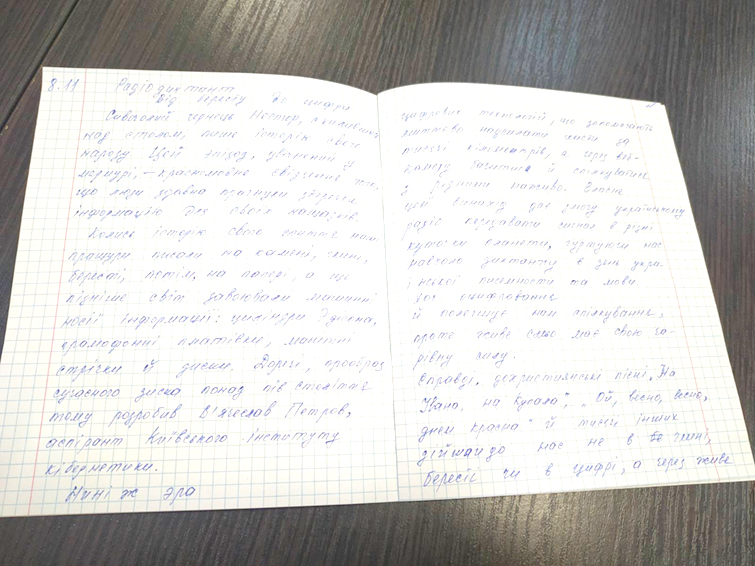 8.11 Радіодиктант
Від бересту до цифри
Сивочолий чернець Нестор, схилившись
над столом, пише історію свого
народу. Цей епізод, увічнений у
мармурі, - красномовне свідчення того,
що люди здавна прагнули зберегти
інформацію для своїх нащадків.
Колись історію свого життя наші
пращури писали на камені, глині,
бересті, потім, на папері, а ще
пізніше світ завоювали машинні
носії інформації: циліндри Едісона,
грамофонні платівки, магнітні
стрічки й диски. До речі, прообраз
сучасного диска понад пів століття
тому розробив В'ячеслав Петров,
аспірант Київського інституту
кібернетики.
Нині ж эра
цифрових технологій, що допомагають
миттєво надсилати листи за
тисячі кілометрів, а через веб-
камеру бачитися й спілкуватися
з рідними наживо. Власне
цей винахід дає змогу українському
радіо передавати сигнал в різні
куточки планети, гуртуючи нас
навколо диктанту в день укра-
їнської писемності та мови.
оцифрування
й полегшує нам спілкування,
проте живе слово має свою ча-
рівну силу.
Справді, дохристиянські пісні „На
Йвана, на Купала", „Ой, весно, весно,
днем красна" й тисячі інших
дійшли до нас не в глині,
бересті чи в цифрі, а через живе